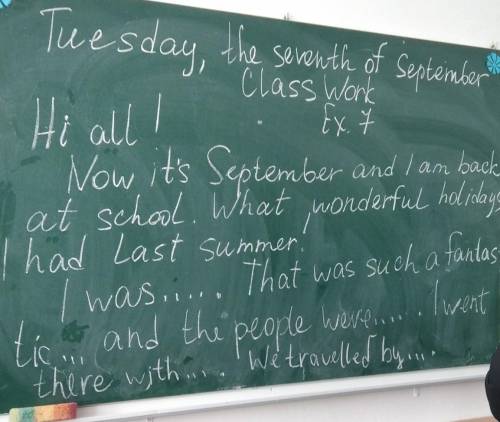 Tuesday, the seventh of September
Class Work
Ex. 7
Hi all!
Now it's September and I am back
at school. What wonderful holidays
I had Last summer.
I was..... That was such a fantas-
tic... and the people were..... I went
there with.... We travelled by....